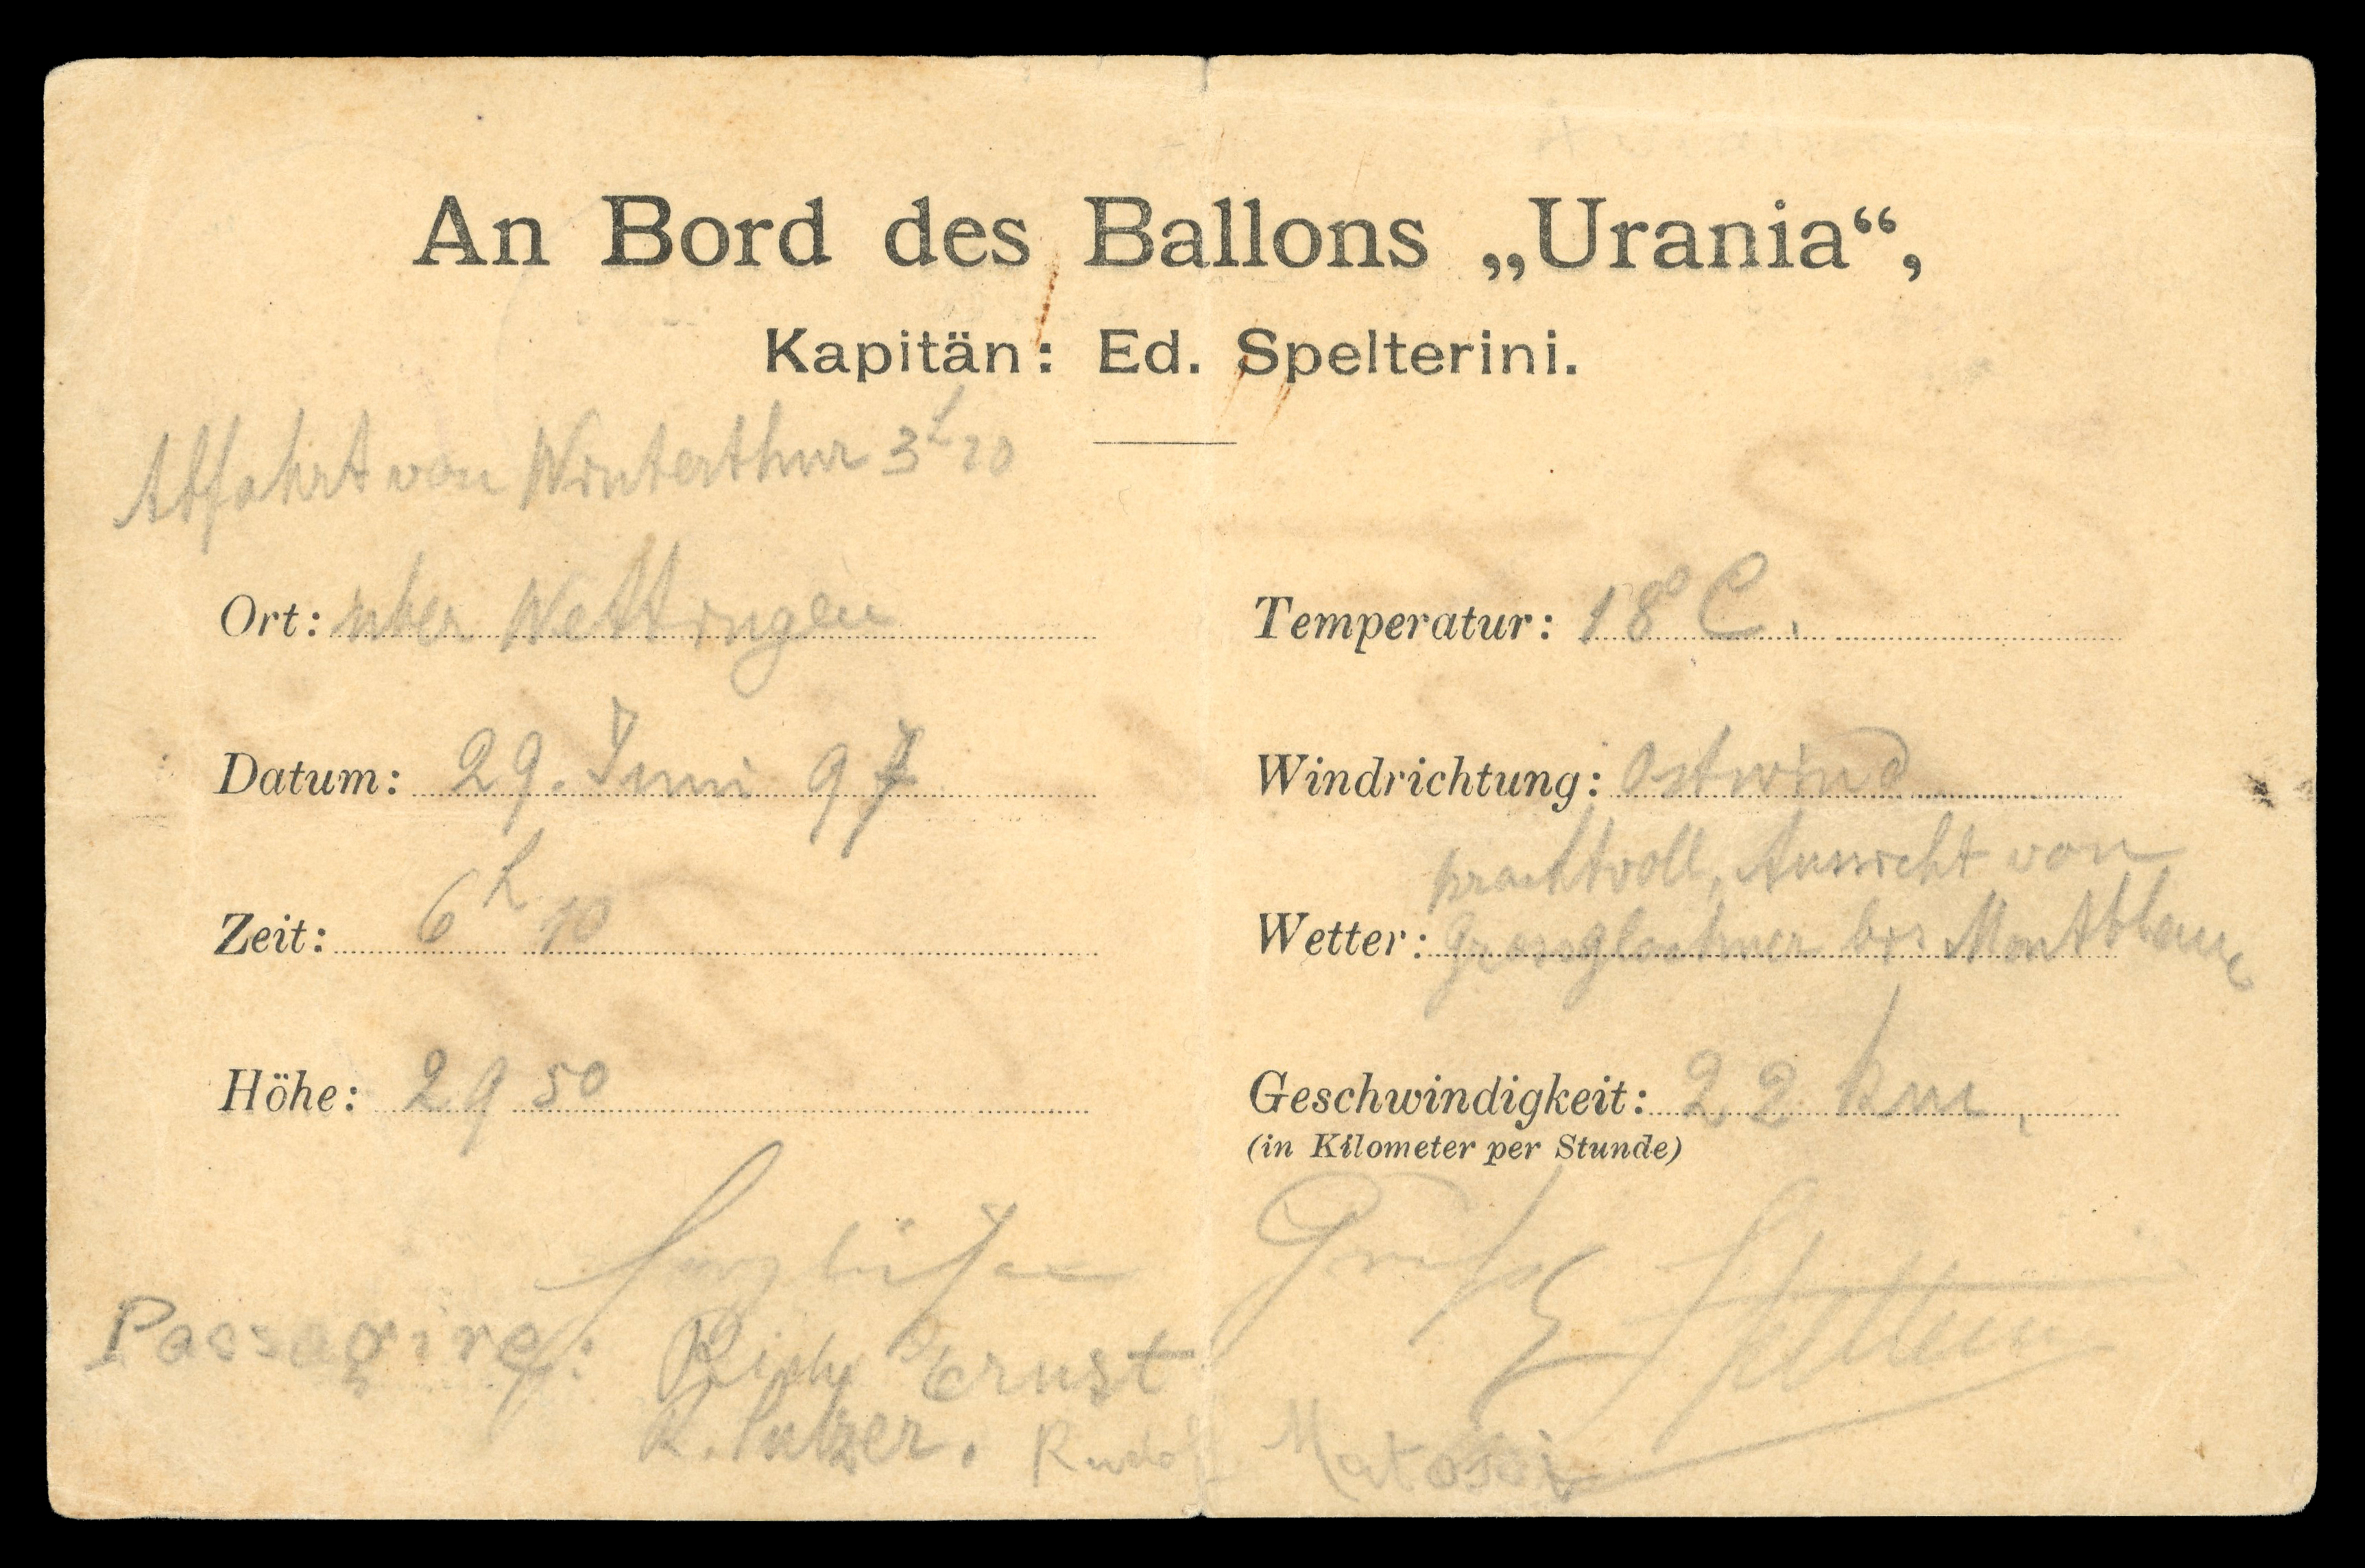 An Bord des Ballons „Urania“,
Kapitän: Ed. Spelterini.
Abfahrt von Winterthur 3h 20
Ort: über Wettingen
Temperatur: 18° C.
Datum: 29. Juni 97
Windrichtung: Ostwind
Zeit: 6h 10
Wetter: prachtvoll, Aussicht von
Grossglockner bis Montblanc
Höhe: 2950
Geschwindigkeit: 22 km.
(in Kilometer per Stunde)
Gruss
Passagire: Ernst
R. Sulzer. Rudolf